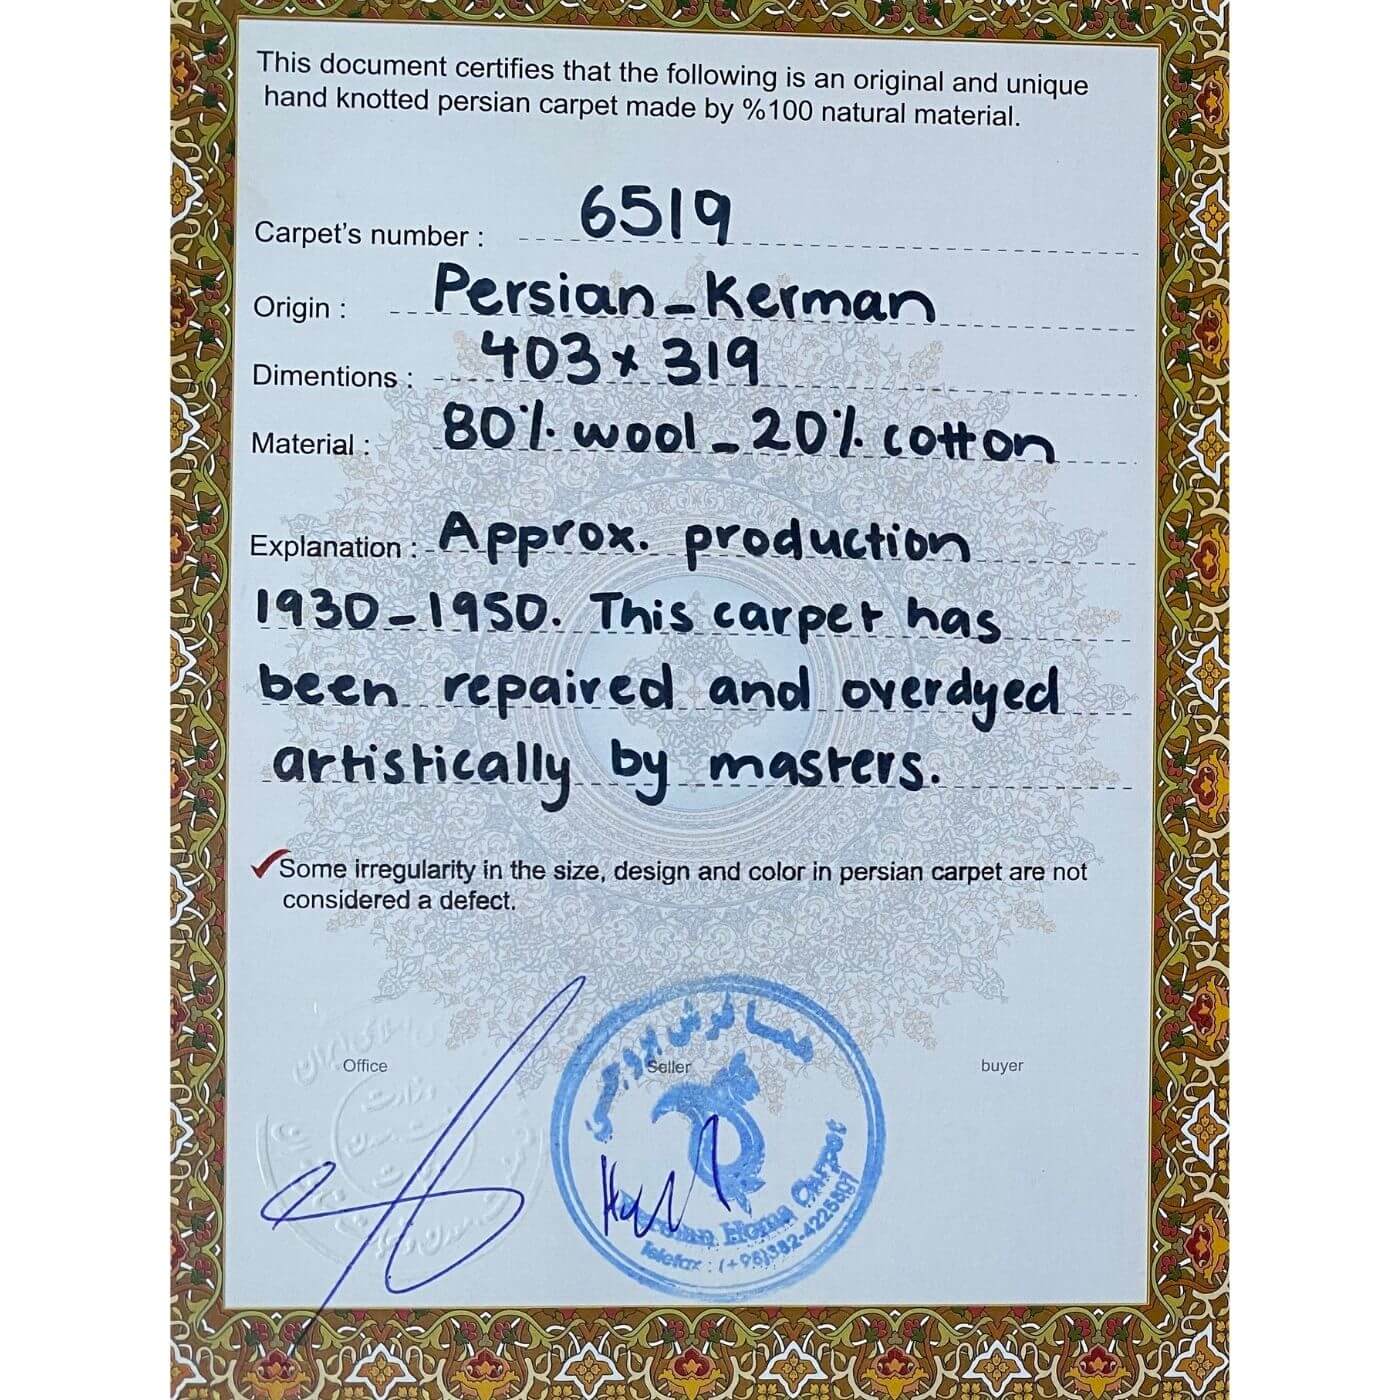 This document certifies that the following is an original and unique
hand knotted persian carpet made by %100 natural material.
Carpet's number : 6519
Origin : Persian-Kerman
Dimentions : 403x319
Material : 80% wool-20% cotton
Explanation : Approx. production
1930-1950. This carpet has
been repaired and overdyed
artistically by masters.
✓Some irregularity in the size, design and color in persian carpet are not
considered a defect.
Office Seller buyer
Persian Home Carpet
Telefax :